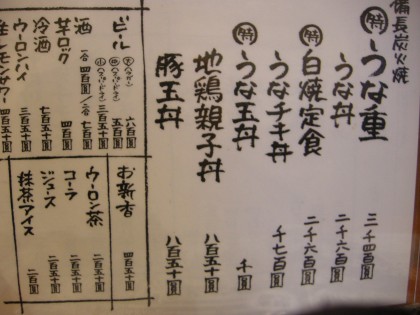 備長炭火焼
特うな重 二千四百圓
うな丼 二千六百圓
特白焼定食 二千六百圓
うなチキ丼 千七百圓
特うな玉丼 千圓
地鶏親子丼 八百五十圓
豚玉丼 八百五十圓
ビール
大 六百圓
小 三百五十圓
酒 一合 四百圓/二合 七百圓
芋ロック 四百圓
冷酒 七百五十圓
ウーロンハイ 三百五十圓
生レモンサワー 四百五十圓
お新香 四百五十圓
ウーロン茶 二百五十圓
コーラ 二百五十圓
ジュース 二百五十圓
抹茶アイス 二百圓